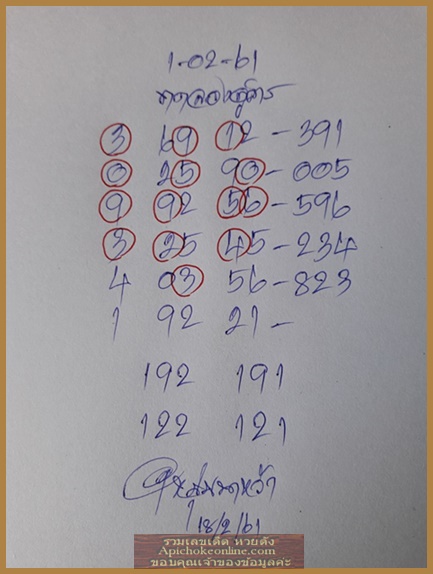 1-02-61
ทดลองสูตร
3 69 12 - 391
0 25 90 - 005
9 92 56 - 596
3 25 45 - 234
4 03 56 - 823
1 92 21 -
192 191
122 121
18/2/61
รวมเลขเด็ด หวยดัง
Apichokeonline.com
ขอบคุณเจ้าของข้อมูลค่ะ